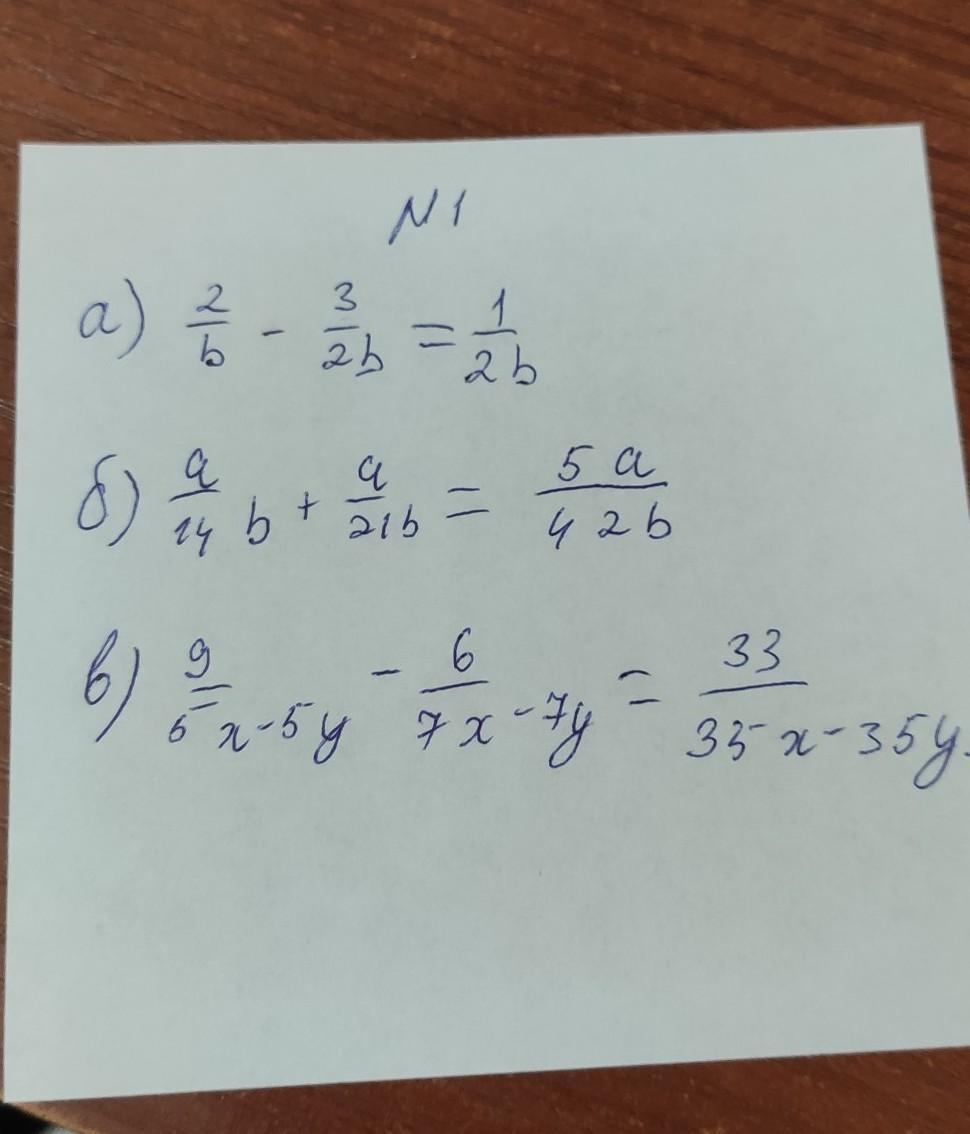 N1
а) 2/b - 3/2b = 1/2b
б) a/14 b + a/21b = 5a/42b
в) 9/5x-5y - 6/7x-7y = 33/35x-35y.